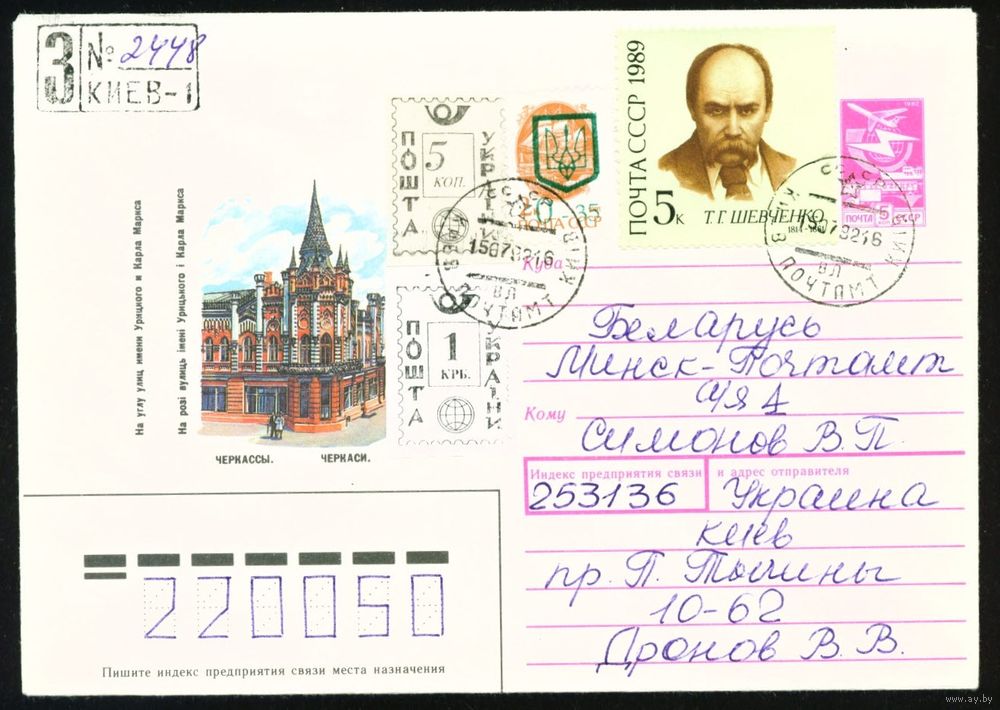 З № 2448
КИЕВ-1
На углу улиц имени Урицкого и Карла Маркса
На розі вулиць імені Урицького і Карла Маркса
ЧЕРКАССЫ. ЧЕРКАСИ.
ПОШТА
5
КОП.
УКРАЇНИ
ПОШТА
1
КРБ.
УКРАЇНИ
ПОЧТА СССР 1989
5к
Т.Г. ШЕВЧЕНКО
1814-1861
ПОЧТА 5
15079216
ВЛ
ПОЧТАМТ КИЇВ
15079216
ВЛ
ПОЧТАМТ КИЇВ
Куда
Беларусь
Минск-Почтамт
а/я 1
Кому
Симонов В.П.
Индекс предприятия связи и адрес отправителя
253136
Украина
Киев
пр. П. Тычины
10-62
Дронов В. В.
220050
Пишите индекс предприятия связи места назначения
www.ay.by